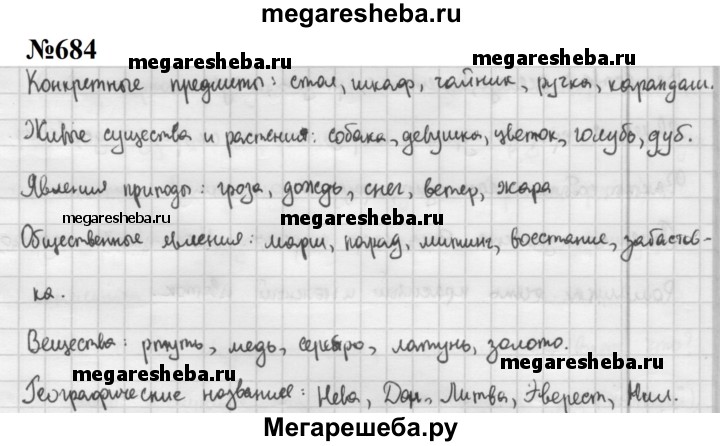 megaresheba.ru
№684
megaresheba.ru megaresheba.ru
Конкретные предметы: стол, шкаф, чайник, ручка, карандаш.
megaresheba.ru megaresheba.ru
Живые существа и растения: собака, девушка, цветок, голубь, дуб.
Явления природы: гроза, дождь, снег, ветер, жара
megaresheba.ru megaresheba.ru
Общественные явления: марш, парад, митинг, восстание, забастов-
ка.
Вещества: ртуть, медь, серебро, латунь, золото.
megaresheba.ru megaresheba.ru
Географические названия: Нева, Дон, Литва, Эверест, Нил.
Мегарешеба.ру